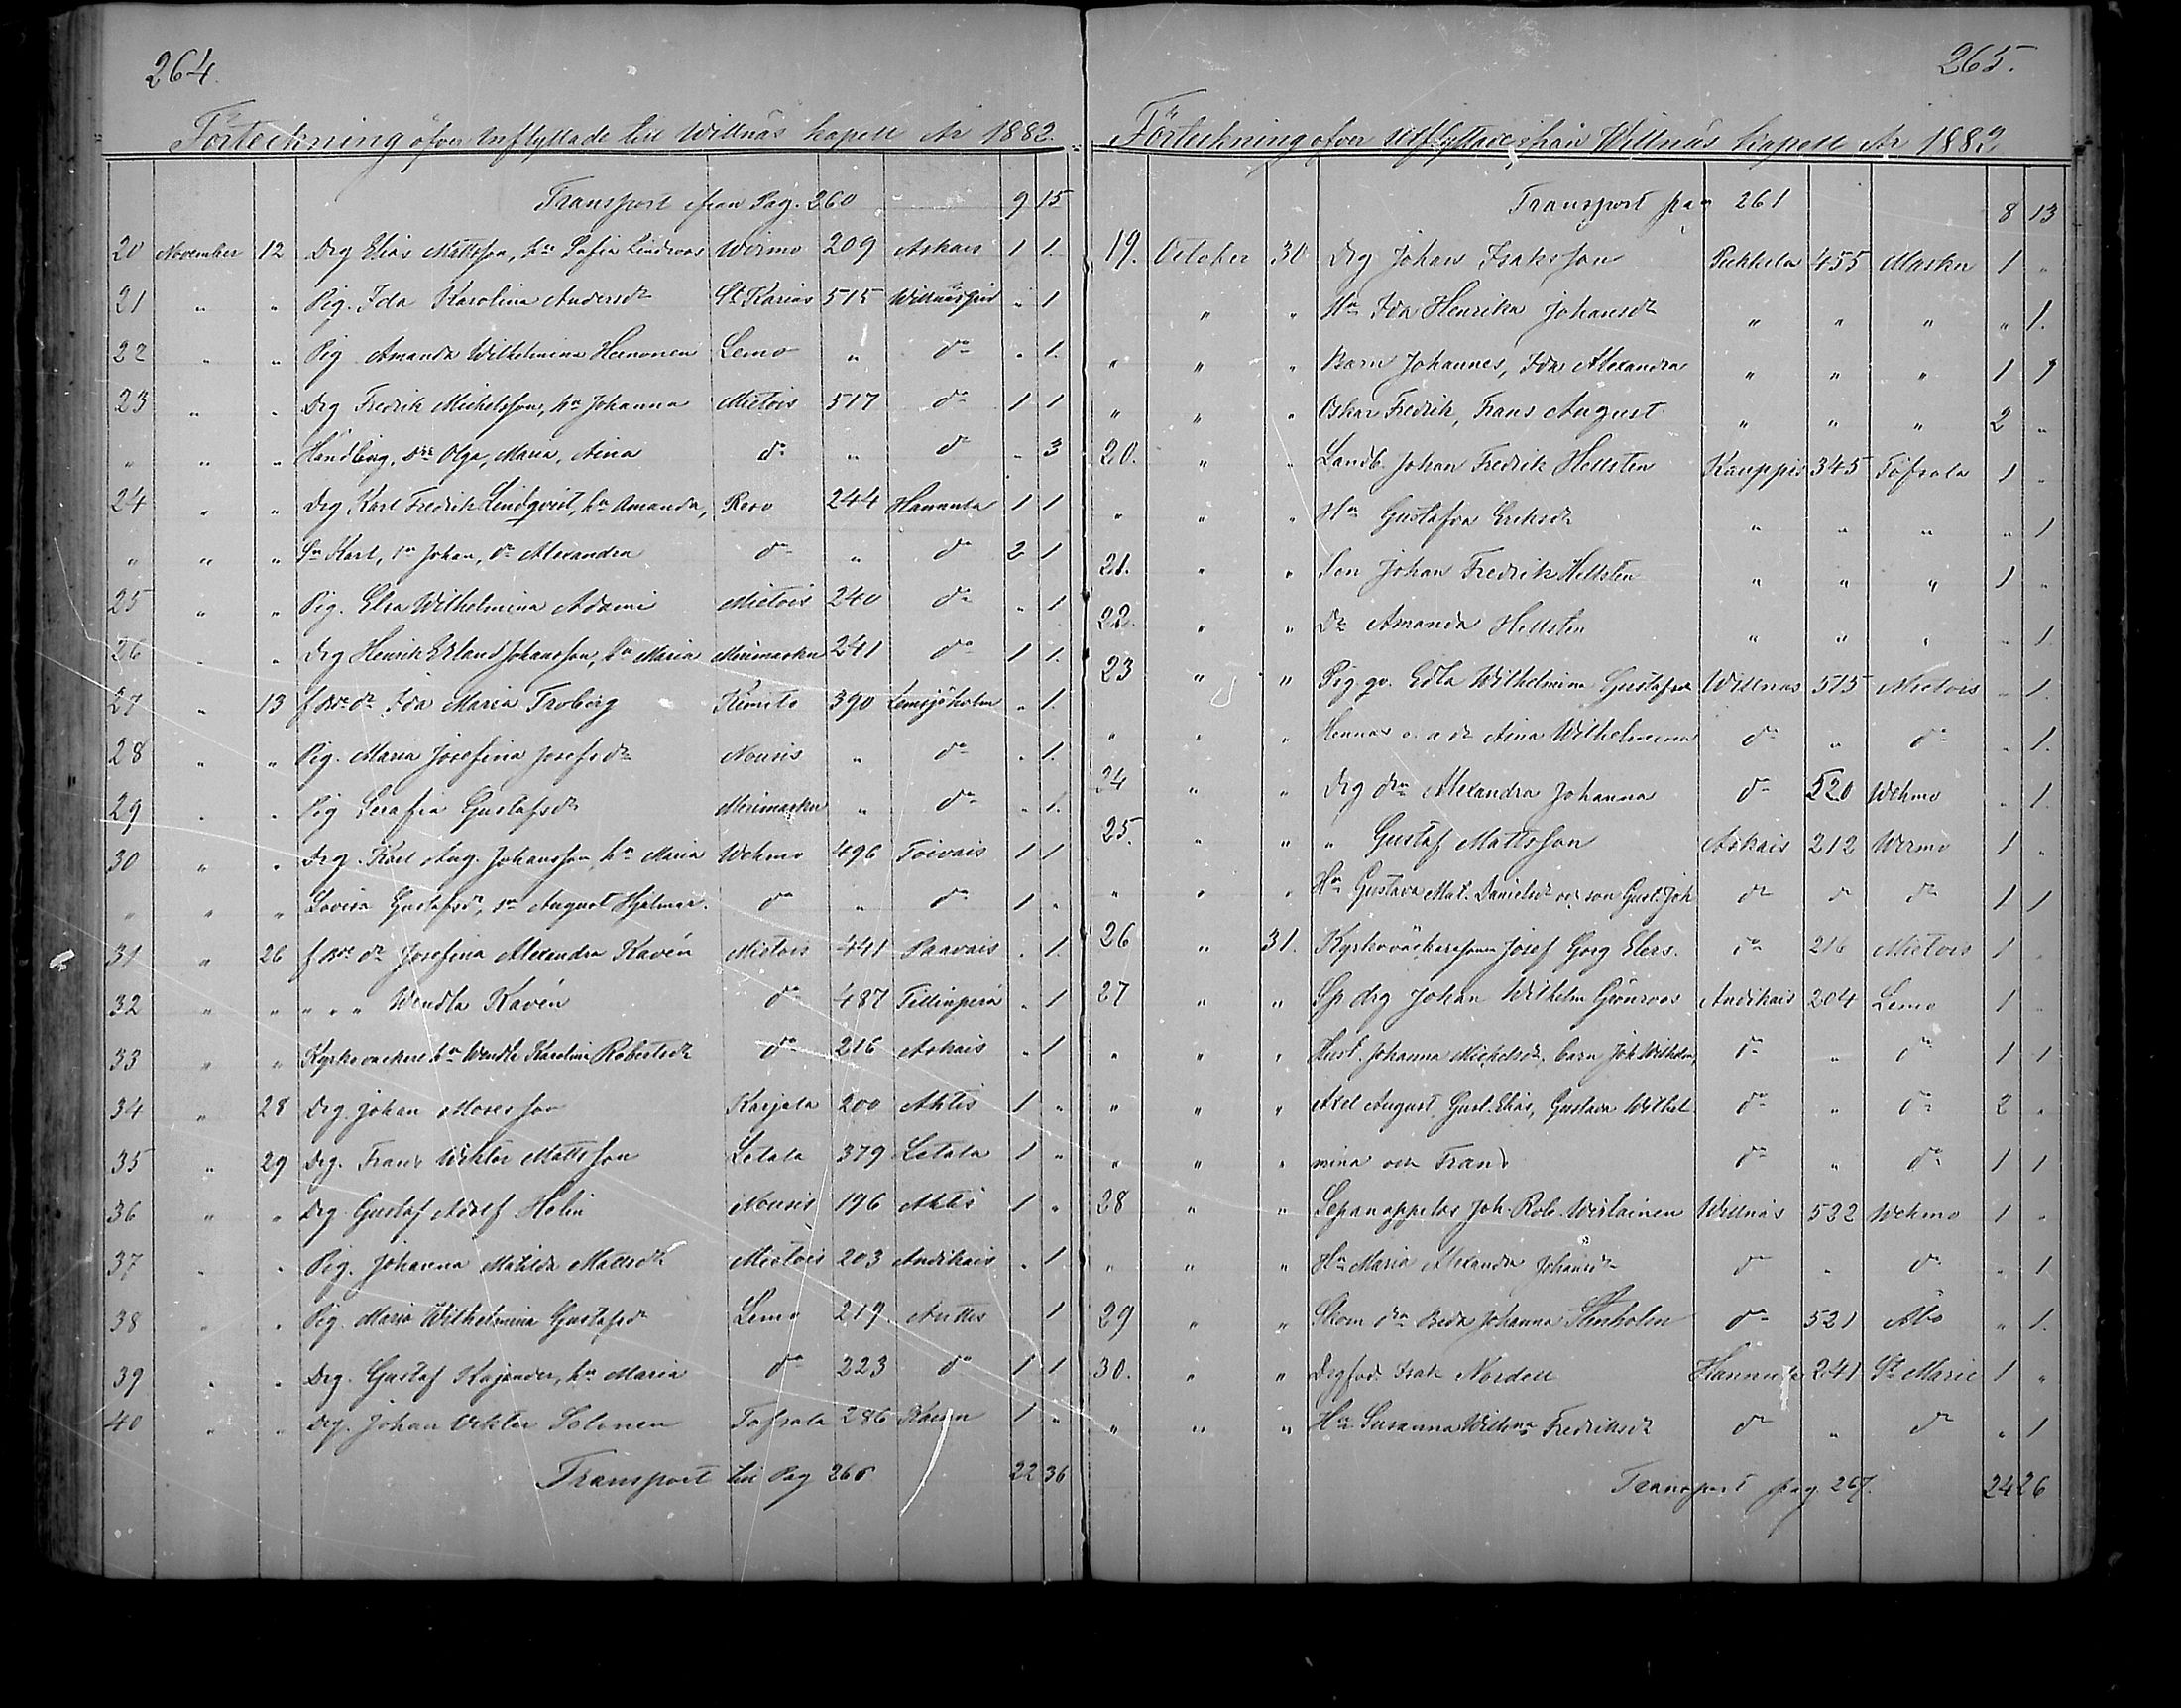 264.
Förteckning öfver Inflyttade till Willnäs kapell År 1882.
Transport från Pag. 260 9 15
20 November 12 Drg Elias Mattsson, hu Sofia Lindroos Wirmo 209 Askais 1 1.
21 " " Pig. Ida Karolina Andersdr St Karins 515 Willnäs " 1
22 " " Pig Amanda Wilhelmina Lemo " do " 1.
23 " " Drg Fredrik Michelsson, hu Johanna Mietois 517 do 1 1
" " " Olga, Maria, Aina do " do " 3
24 " " Drg Karl Fredrik Lindqvist, hu Amanda, Reso 244 Hannula 1 1
" " " Sn Karl, sn Johan, dr Alexandra do " do 2 1
25 " " Pig. Elsa Wilhelmina Adami Mietois 240 do " 1
26 " " Drg Henrik Erland Johansson, hu Maria Merimasku 241 do 1 1.
27 " 13 f Ida Maria Froberg Kimito 390 Lemsjöholm " 1.
28 " " Pig. Maria Josefina Josefsdr Nousis " do " 1.
29 " " Pig Serafia Gustafsdr Merimasku " do " 1.
30 " " Drg. Karl Aug. Johansson hu Maria Wehmo 496 Toivais 1 1
" " " Lovisa Gustafsdr, sn August Hjalmar. do " do 1 "
31 " 26 f dr Josefina Alexandra Kavén Mietois 441 Paavais " 1.
32 " " " " " Wendla Kavén do 487 " 1
33 " " Kyrkovackare hu Wendla Karolina Robertsdr do 216 Askais " 1
34 " 28 Drg. Johan Mosesson Karjala 200 Ahtis 1 "
35 " 29 Drg. Frans Wiktor Mattsson Letala 379 Letala 1 "
36 " " Drg. Gustaf Adolf Helin Nousis 196 Ahtis 1 "
37 " " Pig. Johanna Matilda Mattsdr Mietois 203 Andikais " 1
38 " " Pig. Maria Wilhelmina Gustafsdr Lemo 219 1
39 " " Drg. Gustaf Kajander, hu Maria do 223 do 1 1
40 " " Drg. Johan Viktor Salonen Tofsala 286 1 "
Transport till Pag 266 22 36
265.
Förteckning öfver Utflyttade ifrån Willnäs kapell År 1882
Transport från 261 8 13
19. October 30 Drg Johan Isaksson Pukkila 455 Masku 1 "
" " Hu Ida Henrika Johansdr " " " " 1.
" " " Barn Johannes, Ida Alexandra " " " 1 1
" " " Oskar Fredrik, Frans August " " " 2 "
20. " " Landb. Johan Fredrik Hellsten Kauppis 345 Töfsala 1 "
" " " Hu Gustafva Eriksdr " " " " 1
21. " " Son Johan Fredrik Hellsten " " " 1 "
22. " " Dr Amanda Hellsten " " " " 1.
23 " " Pig qv. Edla Wilhelmina Gustafsdr Willnäs 515 Mietois " 1.
" " " Hennes o. a dr Aina Wilhelmina do " do " 1.
24 " " Drg drn Alexandra Johanna do 520 Wehmo " 1.
25. " " " Gustaf Mattsson Askais 212 Wirmo 1 "
" " " Hu Gustava Mat. Danielsdr och son Gust. Joh do do do 1 1
26 " 31. Kyrkoväckaresonen Josef Georg Elers. do 216 Mietois 1 "
27 " " Sp drg Johan Wilhelm Grönroos Andikais 204 Lemo 1 "
" " " Hust. Johanna Michelsdr, barn Joh. Wilhelm, do " do 1 1
" " " Axel August, Gust. Elias, Gustava Wilhel do " do 2 "
" " " mina och Frans do " do 1 1
28 " " Joh. Rob. Wirtainen Willnäs 522 Wehmo 1 "
" " " Hu Maria Alexandra Johansdr do " do " 1
29 " " Skom drn Beda Johanna Stenholm do 521 Åbo " 1.
30. " " Isak Nordell Hannula 241 St Marie 1 "
" " " Hu Susanna Wilhma Fredriksdr do " do " 1
Transport pag. 267. 24 26